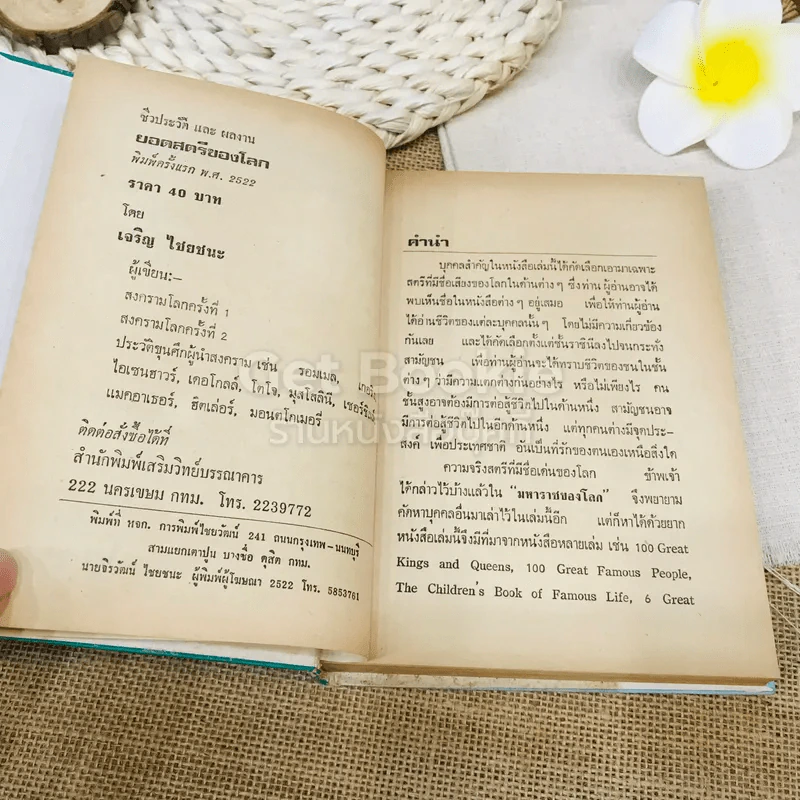 ชีวประวัติ และ ผลงาน
ยอดสตรีของโลก
พิมพ์ครั้งแรก พ.ศ. 2522
ราคา 40 บาท
โดย
เจริญ ไชยชนะ
ผู้เขียน:–
สงครามโลกครั้งที่ 1
สงครามโลกครั้งที่ 2
ประวัติขุนศึกผู้นำสงคราม เช่น รอมเมล,
ไอเซนฮาวร์, เดอโกลล์, โตโจ, มุสโสลินี,
แมคอาเธอร์, ฮิตเล่อร์, มอนต์โกเมอรี่
ติดต่อสั่งซื้อได้ที่
สำนักพิมพ์เสริมวิทย์บรรณาคาร
222 นครเขษม กทม. โทร. 2239772
พิมพ์ที่ หจก. การพิมพ์ไชยวัฒน์ 241 ถนนกรุงเทพ–นนทบุรี
สามแยกเตาปูน บางซื่อ ดุสิต กทม.
นายจิรวัฒน์ ไชยชนะ ผู้พิมพ์ผู้โฆษณา 2522 โทร. 5853761
คำนำ
บุคคลสำคัญในหนังสือเล่มนี้ได้คัดเลือกเอามาเฉพาะ
สตรีที่มีชื่อเสียงของโลกในด้านต่าง ๆ ซึ่งท่าน ผู้อ่านอาจได้
พบเห็นชื่อในหนังสือต่าง ๆ อยู่เสมอ เพื่อให้ท่านผู้อ่าน
ได้อ่านชีวิตของแต่ละบุคคลนั้น ๆ โดยไม่มีความเกี่ยวข้อง
กันเลย และได้คัดเลือกตั้งแต่ชั้นราชินีลงไปจนกระทั่ง
สามัญชน เพื่อท่านผู้อ่านจะได้ทราบชีวิตของชนในชั้น
ต่าง ๆ ว่ามีความแตกต่างกันอย่างไร หรือไม่เพียงไร คน
ชั้นสูงอาจต้องมีการต่อสู้ชีวิตไปในด้านหนึ่ง สามัญชนอาจ
มีการต่อสู้ชีวิตไปในอีกด้านหนึ่ง แต่ทุกคนต่างมีจุดประ-
สงค์ เพื่อประเทศชาติ อันเป็นที่รักของตนเองเหนือสิ่งใด
ความจริงสตรีที่มีชื่อเด่นของโลก ข้าพเจ้า
ได้กล่าวไว้บ้างแล้วใน "มหาราชของโลก" จึงพยายาม
คัดหาบุคคลอื่นมาเล่าไว้ในเล่มนี้อีก แต่ก็หาได้ด้วยยาก
หนังสือเล่มนี้จึงมีที่มาจากหนังสือหลายเล่ม เช่น 100 Great
Kings and Queens, 100 Great Famous People,
The Children's Book of Famous Life, 6 Great